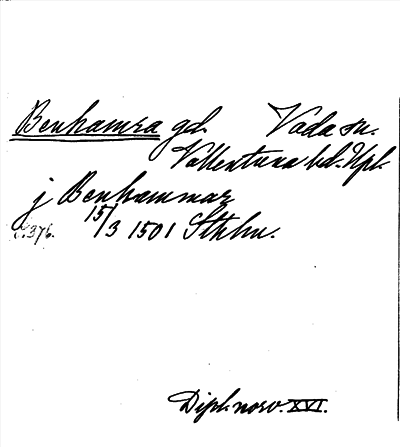 Benhamra gd. Vada sn.
Vallentuna hd. Upl.
j Benhammar
15/3 1501 Sthlm.
s. 376.
Dipl. norv. XVI.